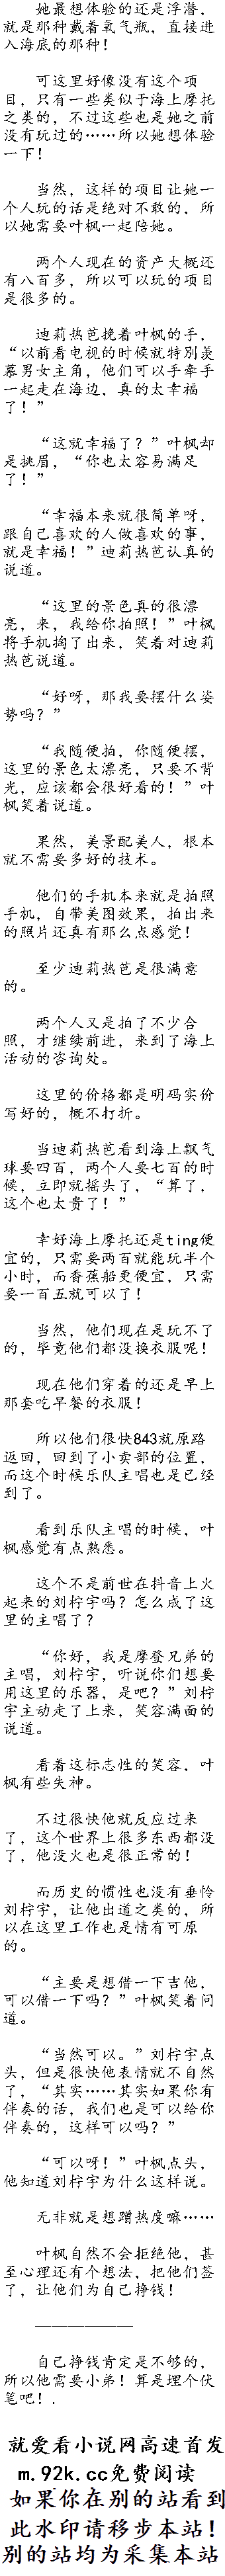 她最想体验的还是浮潜，
就是那种戴着氧气瓶，直接进
入海底的那种！
可这里好像没有这个项
目，只有一些类似于海上摩托
之类的，不过这些也是她之前
没有玩过的……所以她想体验
一下！
当然，这样的项目让她一
个人玩的话是绝对不敢的，所
以她需要叶枫一起陪她。
两个人现在的资产大概还
有八百多，所以可以玩的项目
是很多的。
迪莉热芭挽着叶枫的手，
“以前看电视的时候就特别羡
慕男女主角，他们可以手牵手
一起走在海边，真的太幸福
了！”
“这就幸福了？”叶枫却
是挑眉，“你也太容易满足
了！”
“幸福本来就很简单呀，
跟自己喜欢的人做喜欢的事，
就是幸福！”迪莉热芭认真的
说道。
“这里的景色真的很漂
亮，来，我给你拍照！”叶枫
将手机掏了出来，笑着对迪莉
热芭说道。
“好呀，那我要摆什么姿
势吗？”
“我随便拍，你随便摆，
这里的景色太漂亮，只要不背
光，应该都会很好看的！”叶
枫笑着说道。
果然，美景配美人，根本
就不需要多好的技术。
他们的手机本来就是拍照
手机，自带美图效果，拍出来
的照片还真有那么点感觉！
至少迪莉热芭是很满意
的。
两个人又是拍了不少合
照，才继续前进，来到了海上
活动的咨询处。
这里的价格都是明码实价
写好的，概不打折。
当迪莉热芭看到海上飘气
球要四百，两个人要七百的时
候，立即就摇头了，“算了，
这个也太贵了！”
幸好海上摩托还是ting便
宜的，只需要两百就能玩半个
小时，而香蕉船更便宜，只需
要一百五就可以了！
当然，他们现在是玩不了
的，毕竟他们都没换衣服呢！
现在他们穿着的还是早上
那套吃早餐的衣服！
所以他们很快843就原路
返回，回到了小卖部的位置，
而这个时候乐队主唱也是已经
到了。
看到乐队主唱的时候，叶
枫感觉有点熟悉。
这个不是前世在抖音上火
起来的刘柠宇吗？怎么成了这
里的主唱了？
“你好，我是摩登兄弟的
主唱，刘柠宇，听说你们想要
用这里的乐器，是吧？”刘柠
宇主动走了上来，笑容满面的
说道。
看着这标志性的笑容，叶
枫有些失神。
不过很快他就反应过来
了，这个世界上很多东西都没
了，他没火也是很正常的！
而历史的惯性也没有垂怜
刘柠宇，让他出道之类的，所
以在这里工作也是情有可原
的。
“主要是想借一下吉他，
可以借一下吗？”叶枫笑着问
道。
“当然可以。”刘柠宇点
头，但是很快他表情就不自然
了，“其实……其实如果你有
伴奏的话，我们也是可以给你
伴奏的，这样可以吗？”
“可以呀！”叶枫点头，
他知道刘柠宇为什么这样说。
无非就是想蹭热度嘛……
叶枫自然不会拒绝他，甚
至心理还有个想法，把他们签
了，让他们为自己挣钱！
——————
自己挣钱肯定是不够的，
所以他需要小弟！算是埋个伏
笔吧！.
就爱看小说网高速首发
m.92k.cc免费阅读
如果你在别的站看到
此水印请移步本站！
别的站均为采集本站